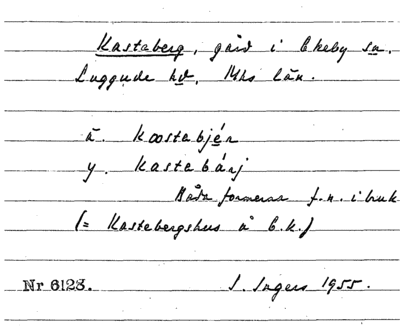 Kastaberg, gård i Ekeby sn.
Luggude hd, Mhs län.
ä. Kastabjér
y. Kastebárj
Båda formerna f.n. i bruk
(= Kastebergshus å E.k.)
Nr 6123. I. Ingers 1955.